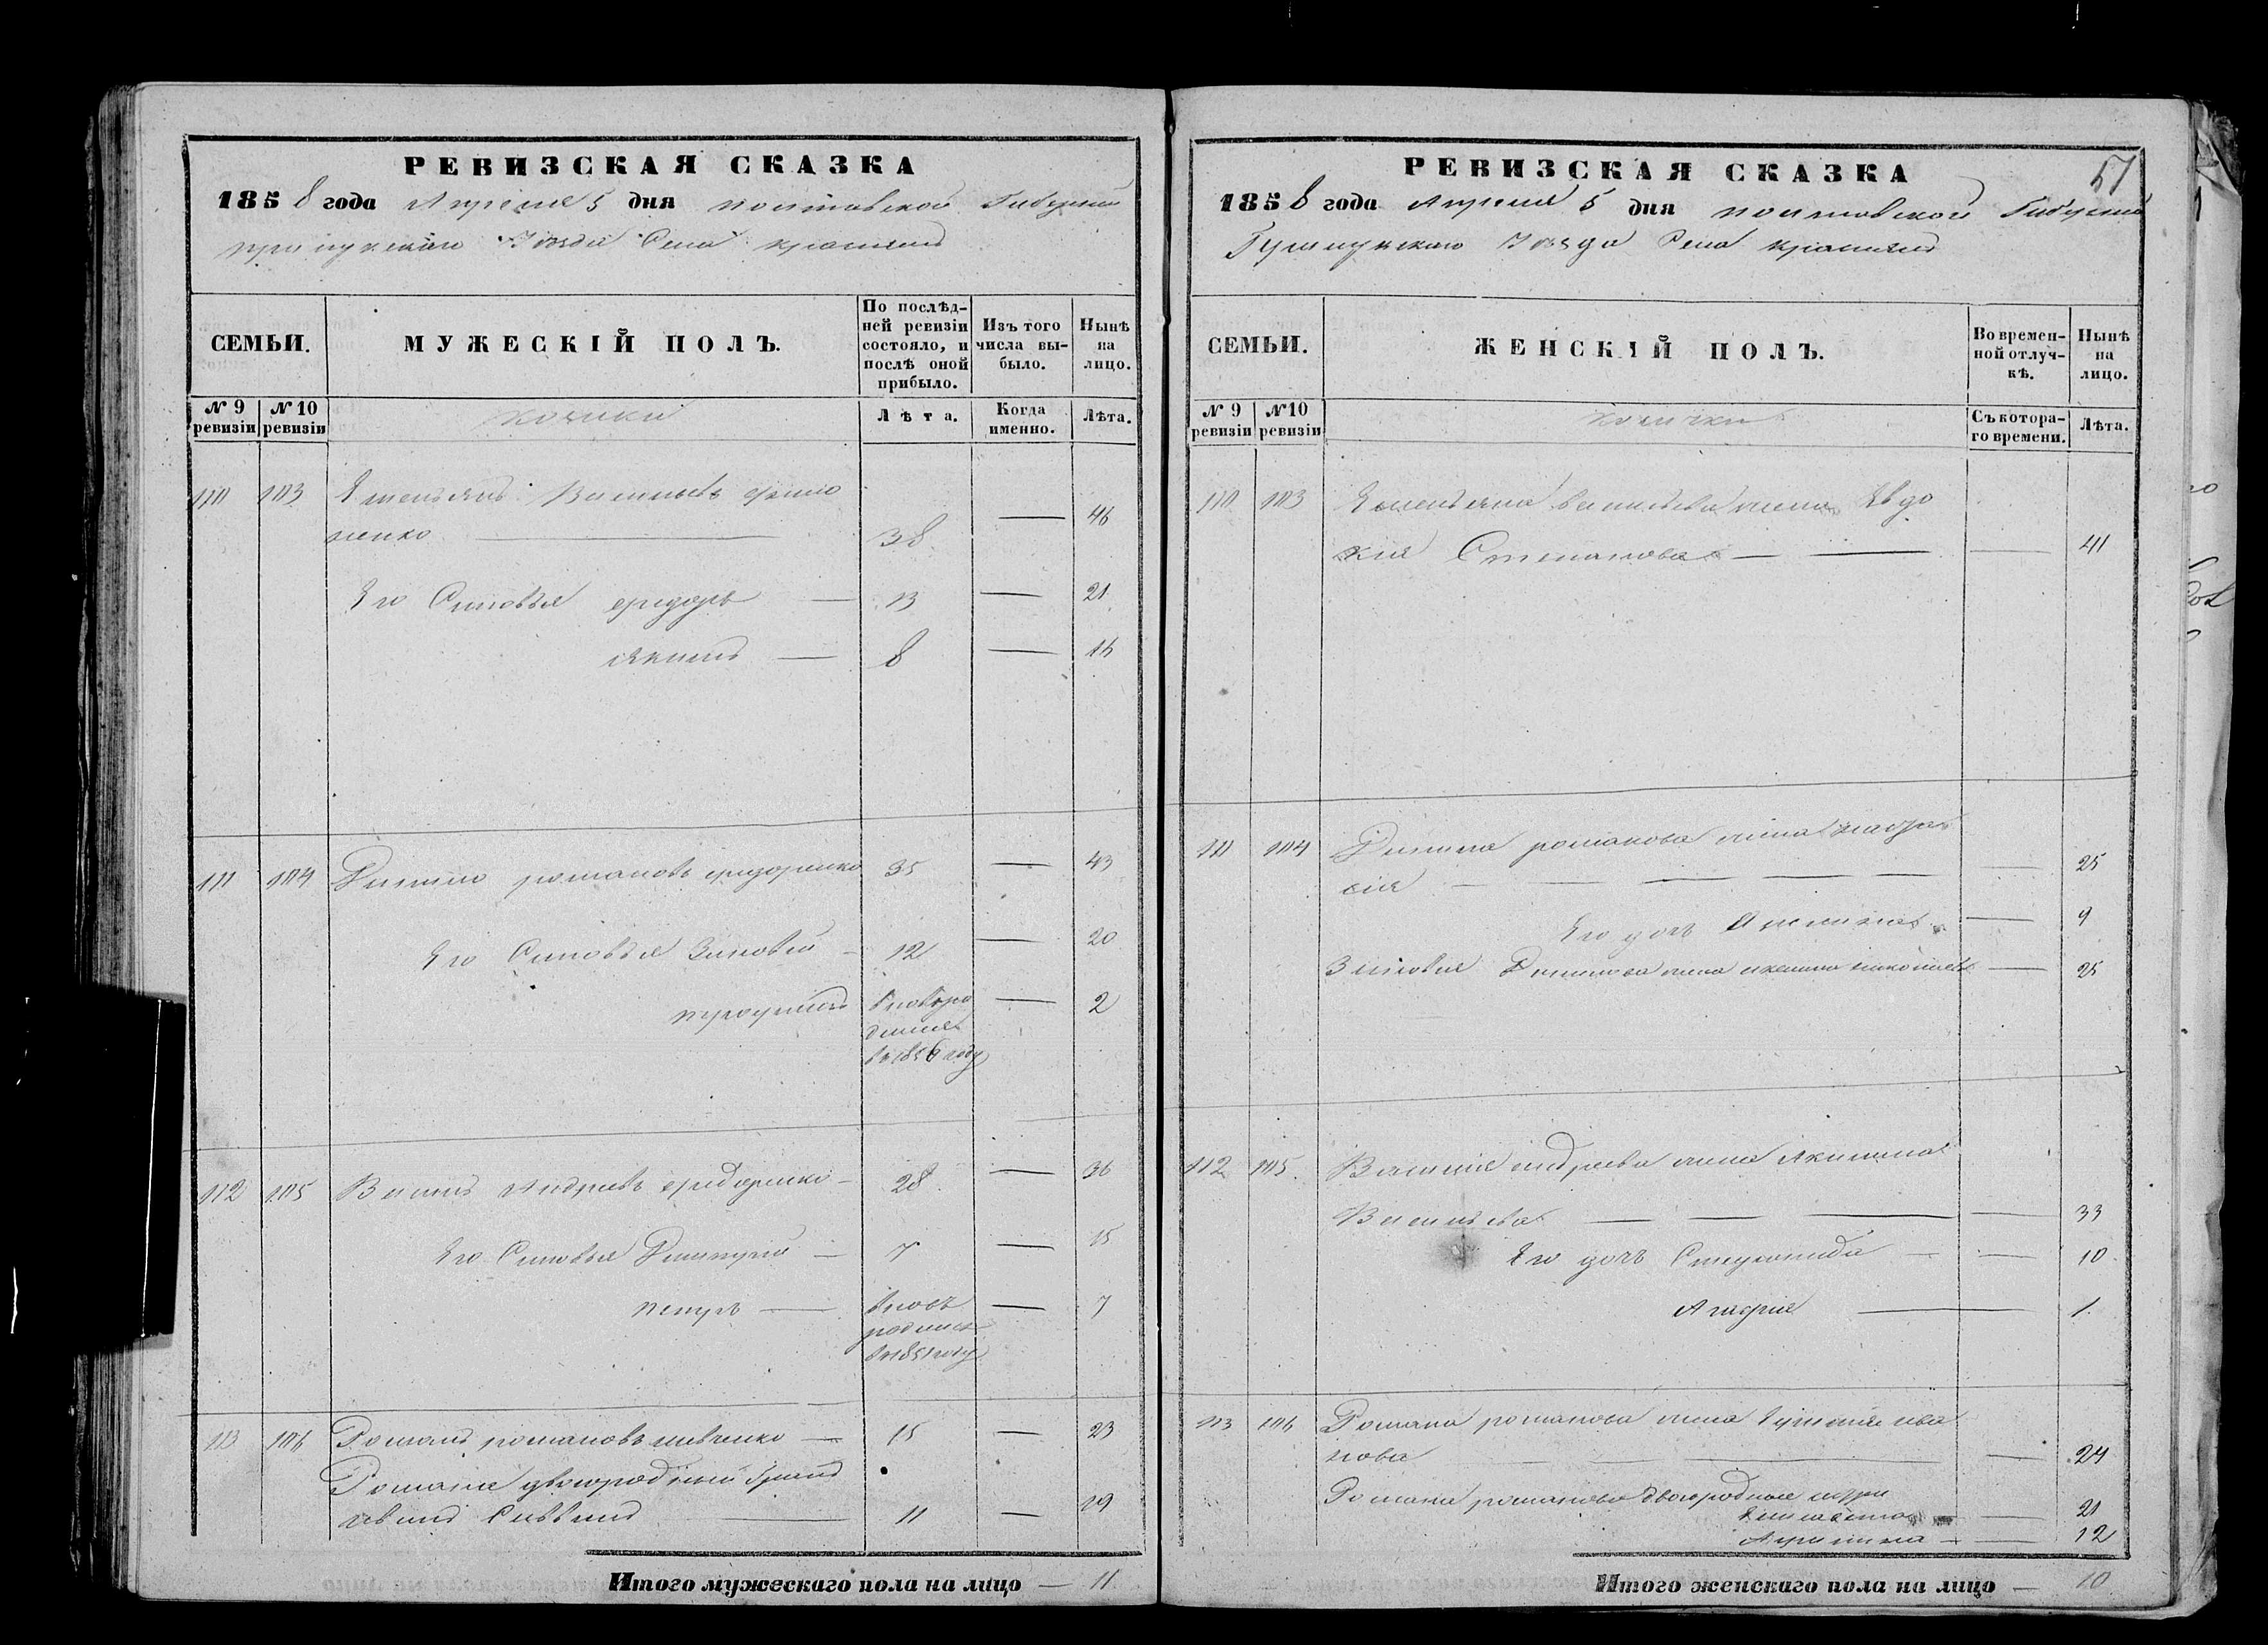 РЕВИЗСКАЯ СКАЗКА
1858 года Апреля 5 дня полтавской Губернии
прилуцкаго Уезда Села
СЕМЬИ.
МУЖЕСКІЙ ПОЛЪ.
По послѣд-
ней ревизіи
состояло, и
послѣ оной
прибыло.
Изъ того
числа вы-
было.
Нынѣ
на
лицо.
№ 9
ревизіи
№ 10
ревизіи
козаки
Лѣта.
Когда
именно.
Лѣта.
110 103 Емельянъ Васильевъ
ненко 38 — 46
Его Сыновья федоръ — 13 — 21
Якимъ — 8 — 16
111 104 Данило романовъ федоренко 35 — 43
Его Сыновья Зиновий — 12 — 20
трофимъ вновь ро — 2
в 1856 году
112 105 Андреевъ федоренко — 28 — 36
Его Сыновья Димитрий — 7 — 15
петръ — вновь — 7
родился
в 1851 году
113 106 Романъ романовъ шевченко — 15 — 23
Романа двоюродный братъ
— 11 — 19
Итого мужескаго пола на лицо — 11
51
РЕВИЗСКАЯ СКАЗКА
1858 года Апреля 5 дня полтавской Губернии
Уезда Села
СЕМЬИ.
ЖЕНСКІЙ ПОЛЪ.
Во времен-
ной отлуч-
кѣ.
Нынѣ
на
лицо.
№ 9
ревизіи
№ 10
ревизіи
козачки
Съ котора-
го времени.
Лѣта.
110 103 Емельяна васильева жена Евдо
кия Степанова — — — 41
111 104 Данила романова жена
сия — — — — — — 25
Его дочь — 9
Зиновия Данилова жена — 25
112 105 андреева жена Акилина
Васильева — — — — 33
Его дочь Степанида — — 10
Агафия — 1
113 106 Романа романова жена ива
нова — — 24
Романа романова двоюродные
— 21
— — 12
Итого женскаго пола на лицо — 10